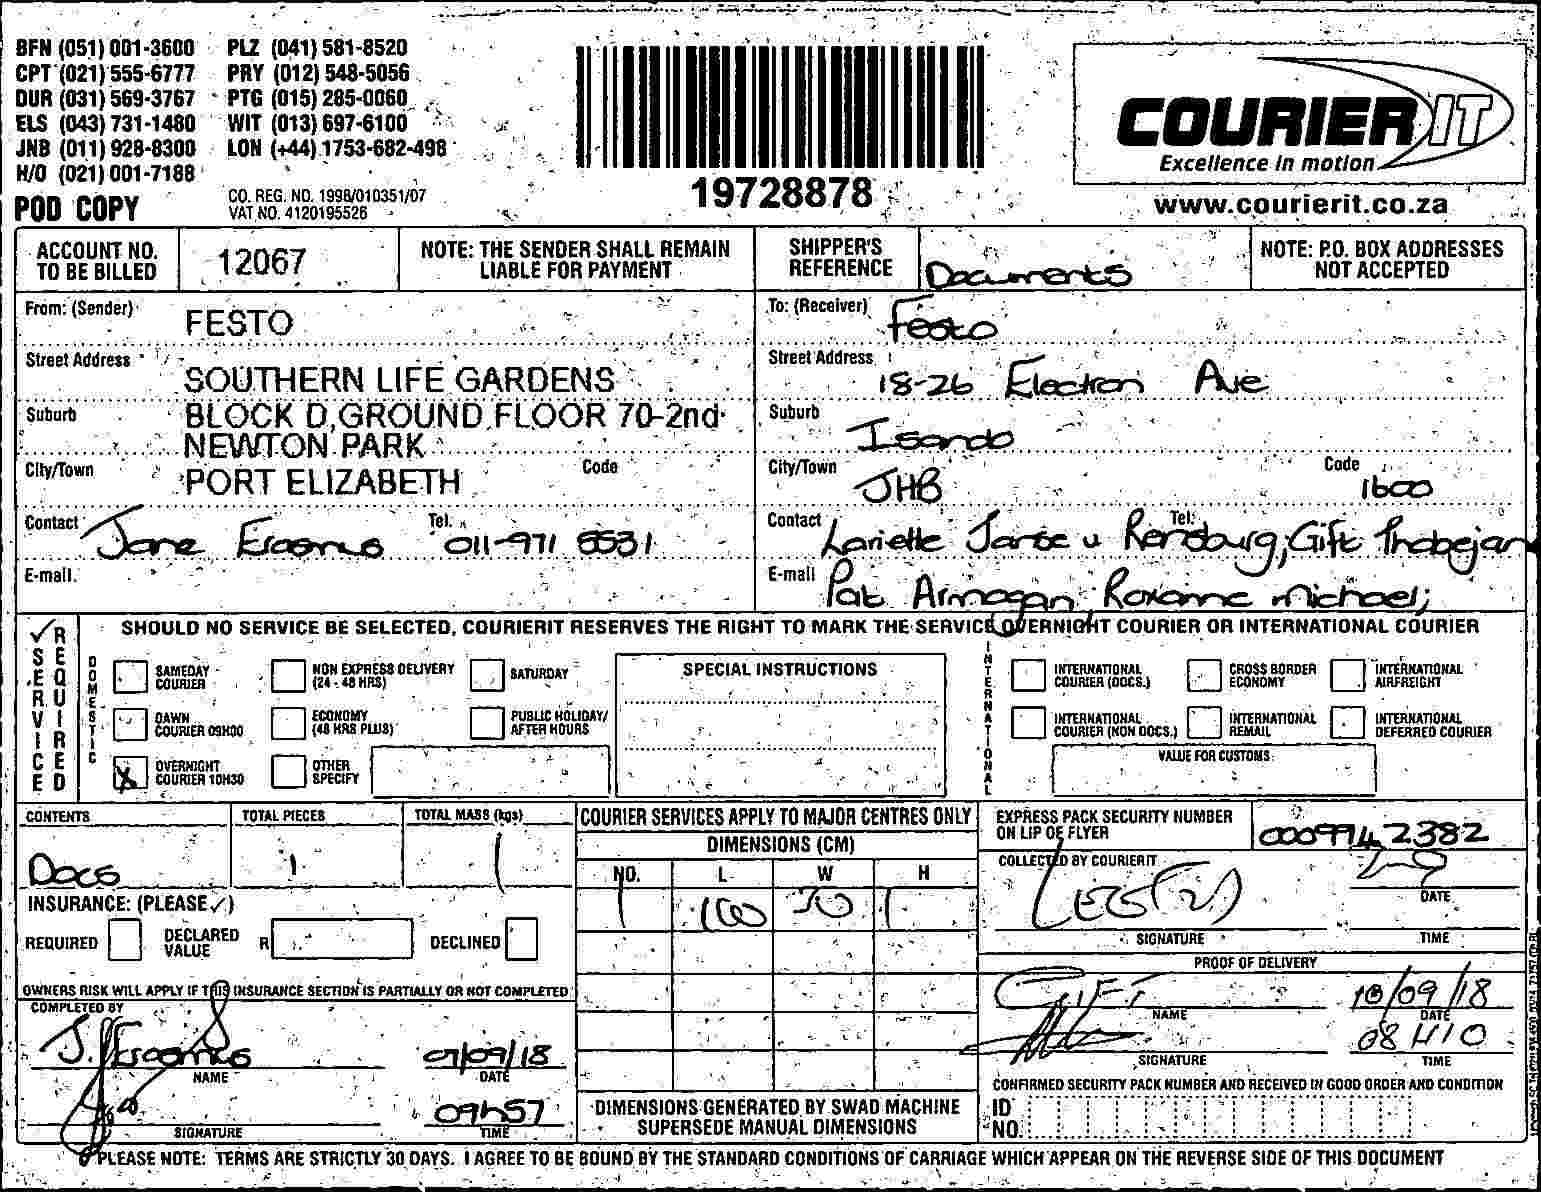 BFN (051) 001-3600 PLZ (041) 581-8520
CPT (021) 555-6777 PRY (012) 548-5056
DUR (031) 569-3767 PTG (015) 285-0060
ELS (043) 731-1480 WIT (013) 697-6100
JNB (011) 928-8300 LON (+44) 1753-682-498
H/O (021) 001-7188
POD COPY
CO. REG. NO. 1998/010351/07
VAT NO. 4120195526
19728878
COURIER IT
Excellence in motion
www.courierit.co.za
ACCOUNT NO. TO BE BILLED 12067
NOTE: THE SENDER SHALL REMAIN LIABLE FOR PAYMENT
SHIPPER'S REFERENCE Documents
NOTE: P.O. BOX ADDRESSES NOT ACCEPTED
From: (Sender) FESTO
Street Address SOUTHERN LIFE GARDENS
Suburb BLOCK D,GROUND FLOOR 70-2nd
NEWTON PARK
City/Town PORT ELIZABETH Code
Contact Jane Erasmus Tel. 011-971 5531
E-mail.
To: (Receiver) Festo
Street Address 18-26 Electron Ave
Suburb Isando
City/Town JHB Code 1600
Contact Lariette Janse v Rensburg, Gift Tel:
E-mail Pat Armogan, Roxanne Michael;
SHOULD NO SERVICE BE SELECTED, COURIERIT RESERVES THE RIGHT TO MARK THE SERVICE OVERNIGHT COURIER OR INTERNATIONAL COURIER
✓ SERVICE REQUIRED
DOMESTIC
SAMEDAY COURIER
NON EXPRESS DELIVERY (24 - 48 HRS)
SATURDAY
DAWN COURIER 09H00
ECONOMY (48 HRS PLUS)
PUBLIC HOLIDAY/ AFTER HOURS
X OVERNIGHT COURIER 10H30
OTHER SPECIFY
SPECIAL INSTRUCTIONS
INTERNATIONAL
INTERNATIONAL COURIER (DOCS.)
CROSS BORDER ECONOMY
INTERNATIONAL AIRFREIGHT
INTERNATIONAL COURIER (NON DOCS.)
INTERNATIONAL REMAIL
INTERNATIONAL DEFERRED COURIER
VALUE FOR CUSTOMS:
CONTENTS Docs
TOTAL PIECES 1
TOTAL MASS (kgs) 1
INSURANCE: (PLEASE ✓)
REQUIRED DECLARED VALUE R DECLINED
OWNERS RISK WILL APPLY IF THIS INSURANCE SECTION IS PARTIALLY OR NOT COMPLETED
COMPLETED BY
J. Erasmus 07/09/18
NAME DATE
09h57
SIGNATURE TIME
COURIER SERVICES APPLY TO MAJOR CENTRES ONLY
DIMENSIONS (CM)
NO. L W H
1 30 1
DIMENSIONS GENERATED BY SWAD MACHINE SUPERSEDE MANUAL DIMENSIONS
EXPRESS PACK SECURITY NUMBER ON LIP OF FLYER 0009942382
COLLECTED BY COURIERIT
DATE
SIGNATURE TIME
PROOF OF DELIVERY
GIFT 10/09/18
NAME DATE
08H10
SIGNATURE TIME
CONFIRMED SECURITY PACK NUMBER AND RECEIVED IN GOOD ORDER AND CONDITION
ID NO.
PLEASE NOTE: TERMS ARE STRICTLY 30 DAYS. I AGREE TO BE BOUND BY THE STANDARD CONDITIONS OF CARRIAGE WHICH APPEAR ON THE REVERSE SIDE OF THIS DOCUMENT